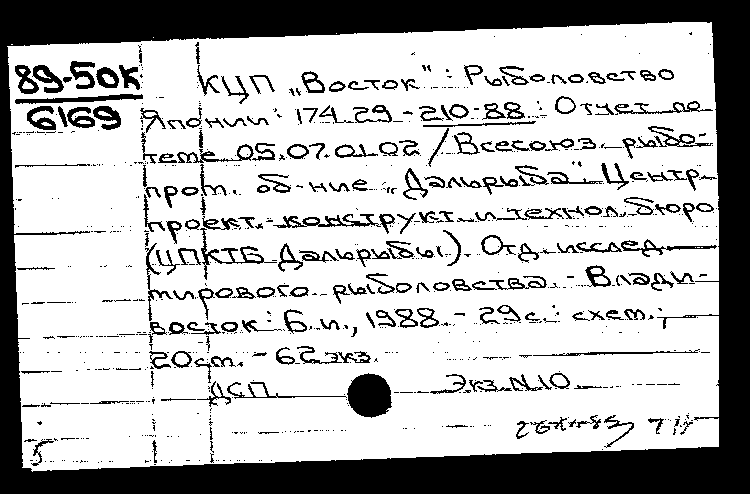 89-50К
6169
КЦП „Восток": Рыболовство
Японии: 174.29-210-88: Отчет по
теме 05.07.01.02 / Всесоюз. рыбо-
пром. об-ние „Дальрыба". Центр.
проект.-конструкт. и технол. бюро
(ЦПКТБ Дальрыбы). Отд. исслед.
мирового рыболовства. - Влади-
восток: Б.и., 1988. - 29с.: схем.;
20см. - 62экз.
ДСП. Экз.N10.
5